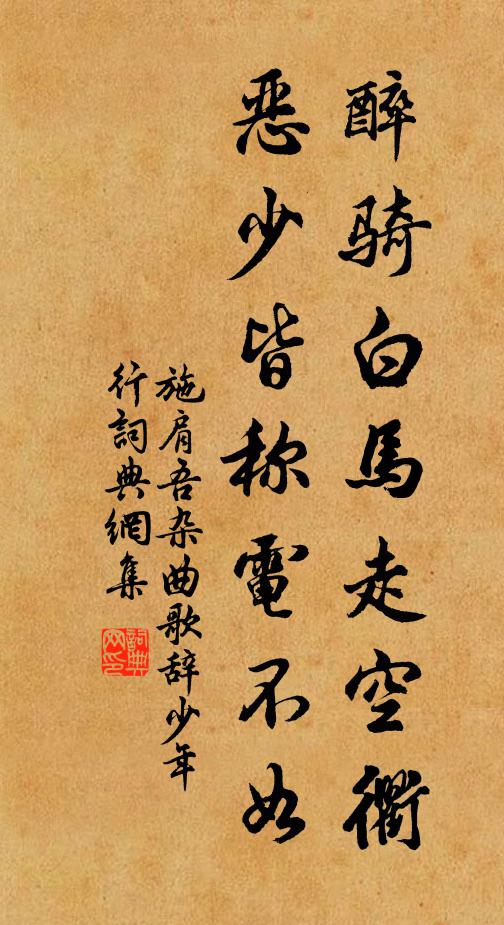 醉骑白馬走空衢
惡少皆称電不如
施肩吾杂曲歌辞少年
行詞典網集
詞典网印